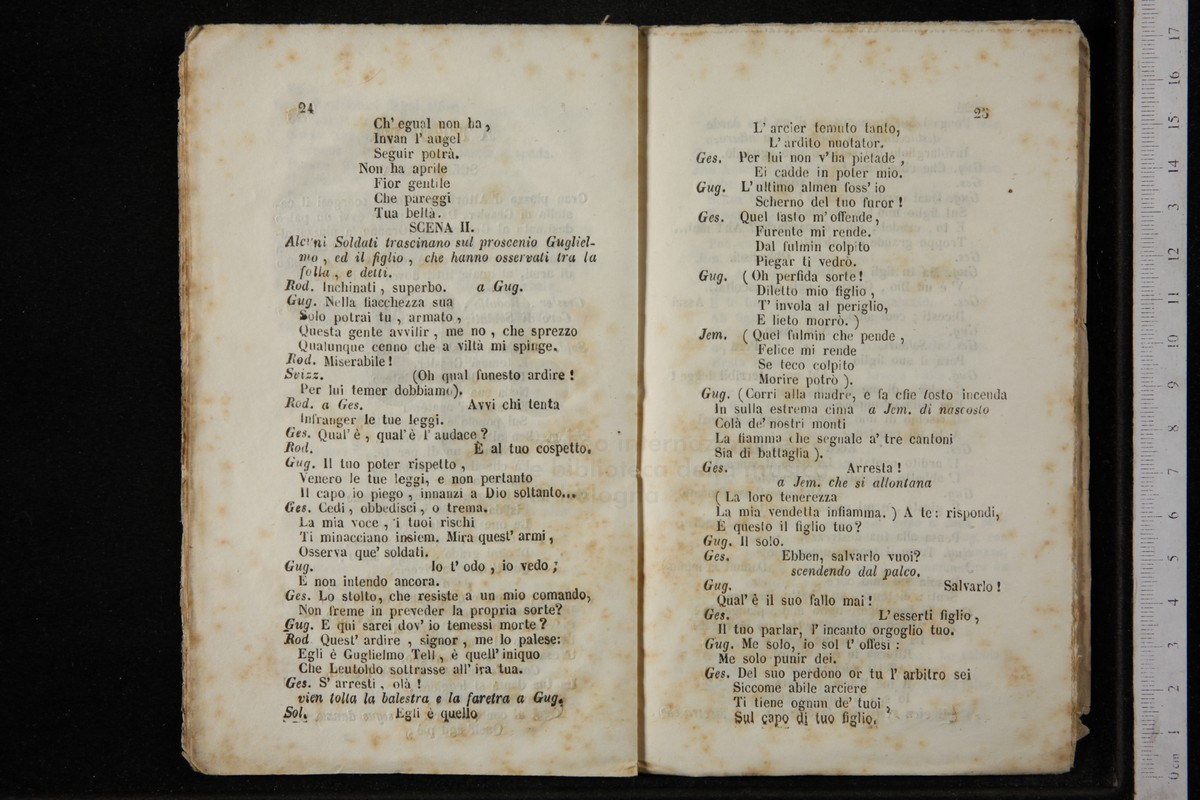 24
Ch' egual non ha,
Invan l' augel
Seguir potrà.
Non ha aprile
Fior gentile
Che pareggi
Tua beltà.
SCENA II.
Alcuni Soldati trascinano sul proscenio Gugliel-
mo, ed il figlio, che hanno osservati tra la
folla, e detti.
Rod. Inchinati, superbo. a Gug.
Gug. Nella fiacchezza sua
Solo potrai tu, armato,
Questa gente avvilir, me no, che sprezzo
Qualunque cenno che a viltà mi spinge.
Rod. Miserabile!
Svizz. (Oh qual funesto ardire!
Per lui temer dobbiamo).
Rod. a Ges. Avvi chi tenta
Infranger le tue leggi.
Ges. Qual' è, qual' è l' audace?
Rod. È al tuo cospetto.
Gug. Il tuo poter rispetto,
Venero le tue leggi, e non pertanto
Il capo io piego, innanzi a Dio soltanto...
Ges. Cedi, obbedisci, o trema.
La mia voce, i tuoi rischi
Ti minacciano insiem. Mira quest' armi,
Osserva que' soldati.
Gug. Io t' odo, io vedo;
E non intendo ancora.
Ges. Lo stolto, che resiste a un mio comando,
Non freme in preveder la propria sorte?
Gug. E qui sarei dov' io temessi morte?
Rod Quest' ardire, signor, me lo palese:
Egli è Guglielmo Tell, è quell' iniquo
Che Leutoldo sottrasse all' ira tua.
Ges. S' arresti, olà!
vien tolta la balestra e la faretra a Gug.
Sol. Egli è quello
25
L' arcier temuto tanto,
L' ardito nuotator.
Ges. Per lui non v' ha pietade,
Ei cadde in poter mio.
Gug. L' ultimo almen foss' io
Scherno del tuo furor!
Ges. Quel fasto m' offende,
Furente mi rende.
Dal fulmin colpito
Piegar ti vedrò.
Gug. (Oh perfida sorte!
Diletto mio figlio,
T' invola al periglio,
E lieto morrò.)
Jem. (Quel fulmin che pende,
Felice mi rende
Se teco colpito
Morire potrò).
Gug. (Corri alla madre, e fa che tosto incenda
In sulla estrema cima a Jem. di nascosto
Colà de' nostri monti
La fiamma che segnale a' tre cantoni
Sia di battaglia).
Ges. Arresta!
a Jem. che si allontana
(La loro tenerezza
La mia vendetta infiamma.) A te: rispondi,
È questo il figlio tuo?
Gug. Il solo.
Ges. Ebben, salvarlo vuoi?
scendendo dal palco.
Gug. Salvarlo!
Qual' è il suo fallo mai!
Ges. L' esserti figlio,
Il tuo parlar, l' incauto orgoglio tuo.
Gug. Me solo, io sol t' offesi:
Me solo punir dei.
Ges. Del suo perdono or tu l' arbitro sei
Siccome abile arciere
Ti tiene ognun de' tuoi,
Sul capo di tuo figlio,